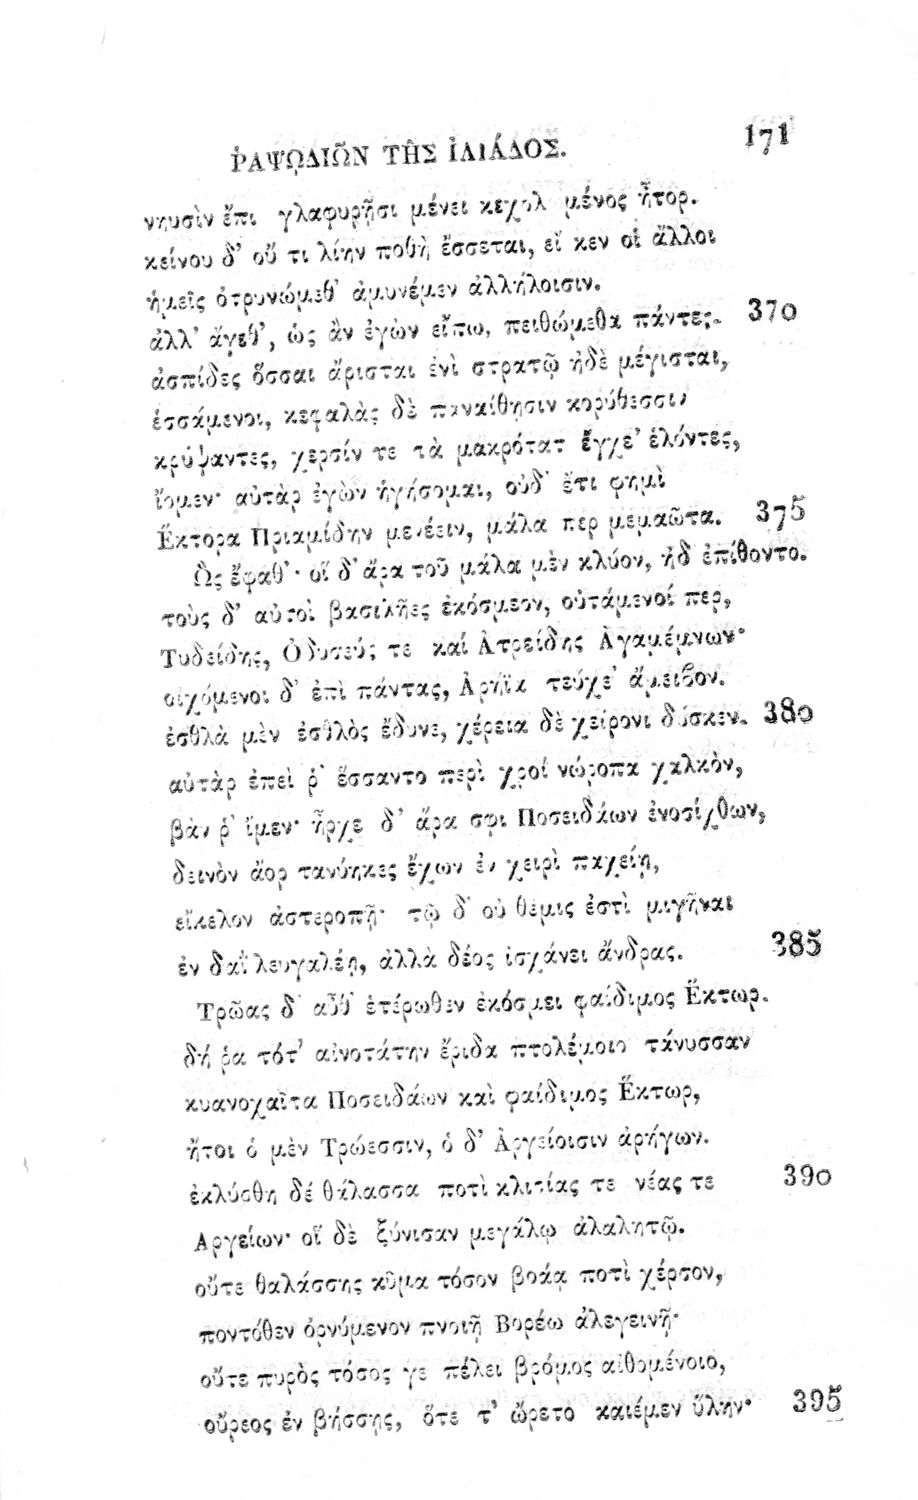 ῬΑΨῼΔΙΩ͂Ν ΤΗ͂Σ ἸΛΙΆΔΟΣ. 171
νηυσὶν ἔπι γλαφυρῇσι μένει κεχολ μένος ἦτορ.
κείνου δ' οὔ τι λίην ποθὴ ἔσσεται, εἴ κεν οἱ ἄλλοι
ἡμεῖς ὀτρυνώμεθ' ἀμυνέμεν ἀλλήλοισιν.
ἀλλ' ἄγεθ', ὡς ἂν ἐγὼν εἴπω, πειθώμεθα πάντες. 370
ἀσπίδες ὅσσαι ἄρισται ἐνὶ στρατῷ ἠδὲ μέγισται,
ἑσσάμενοι, κεφαλὰς δὲ παναίθησιν κορύθεσσι
κρύψαντες, χερσίν τε τὰ μακρότατ ἔγχε' ἑλόντες,
ἴομεν· αὐτὰρ ἐγὼν ἡγήσομαι, οὐδ' ἔτι φημὶ
Ἕκτορα Πριαμίδην μενέειν, μάλα περ μεμαῶτα. 375
Ὣς ἔφαθ'· οἵ δ' ἄρα τοῦ μάλα μὲν κλύον, ἠδ' ἐπίθοντο.
τοὺς δ' αὐτοὶ βασιλῆες ἐκόσμεον, οὐτάμενοί περ,
Τυδείδης, Ὀδυσεύς τε καί Ἀτρείδης Ἀγαμέμνων·
οἰχόμενοι δ' ἐπὶ πάντας, Ἀρήϊα τεύχε' ἄμειβον.
ἐσθλὰ μὲν ἐσθλὸς ἔδυνε, χέρεια δὲ χείρονι δόσκεν. 380
αὐτὰρ ἐπεὶ ῥ' ἕσσαντο περὶ χροῒ νώροπα χαλκὸν,
βάν ῥ' ἴμεν· ἦρχε δ' ἄρα σφι Ποσειδάων ἐνοσίχθων,
δεινὸν ἄορ τανύηκες ἔχων ἐν χειρὶ παχείῃ,
εἴκελον ἀστεροπῇ· τῷ δ' οὐ θέμις ἐστὶ μιγῆναι
ἐν δαῒ λευγαλέῃ, ἀλλὰ δέος ἰσχάνει ἄνδρας. 385
Τρῶας δ' αὖθ' ἑτέρωθεν ἐκόσμει φαίδιμος Ἕκτωρ.
δή ῥα τότ' αἰνοτάτην ἔριδα πτολέμοιο τάνυσσαν
κυανοχαῖτα Ποσειδάων καὶ φαίδιμος Ἕκτωρ,
ἤτοι ὁ μὲν Τρώεσσιν, ὁ δ' Ἀργείοισιν ἀρήγων.
ἐκλύσθη δέ θάλασσα ποτὶ κλισίας τε νέας τε 390
Ἀργείων· οἵ δὲ ξύνισαν μεγάλῳ ἀλαλητῷ.
οὔτε θαλάσσης κῦμα τόσον βοάᾳ ποτὶ χέρσον,
ποντόθεν ὀρνύμενον πνοιῇ Βορέω ἀλεγεινῇ·
οὔτε πυρὸς τόσος γε πέλει βρόμος αἰθομένοιο,
οὔρεος ἐν βήσσῃς, ὅτε τ' ὤρετο καιέμεν ὕλην· 395